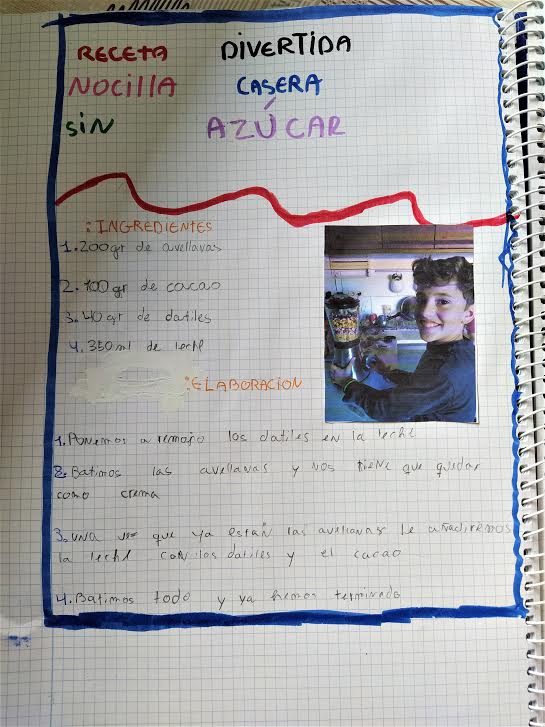 RECETA DIVERTIDA
NOCILLA CASERA
SIN AZÚCAR
:INGREDIENTES
1.200gr de avellavas
2.100gr de cacao
3.40gr de datiles
4.350ml de leche
:ELABORACION
1.Ponemos a remojo los datiles en la leche
2.Batimos las avellavas y nos tiene que quedar
como crema
3.una vez que ya están las avellanas le añadiremos
la leche con los datiles y el cacao
4.Batimos todo y ya hemos terminado